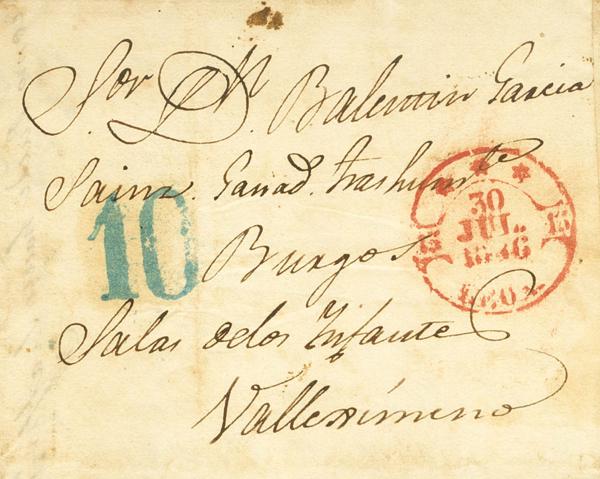 Sor D. M. Balentin Garcia
Sainz. Ganad. trashumte
10
Burgos
Salas delos Infante
Vallesimeno
30
JUL.
1846
LEON
13
13